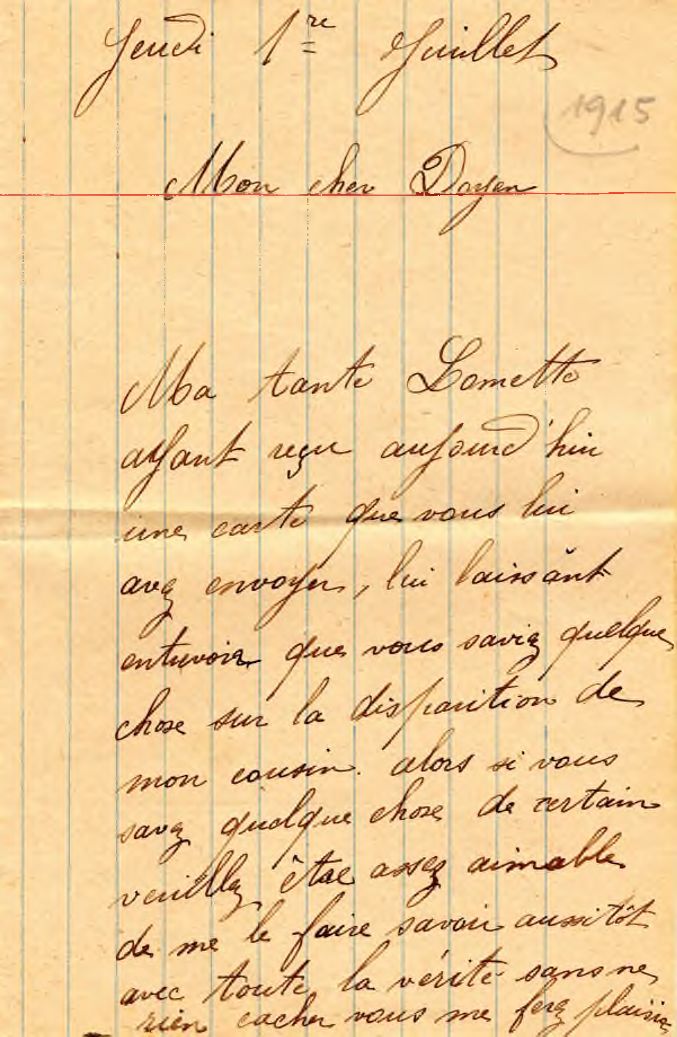 Jeudi 1re Juillet
1915
Mon cher Doyen
Ma tante Lomette
ayant reçu aujourd'hui
une carte que vous lui
avez envoyer, lui laissant
entrevoir que vous saviez quelque
chose sur la disparition de
mon cousin. alors si vous
savez quelque chose de certain
veuillez être assez aimable
de me le faire savoir aussitôt
avec toute la vérité sans ne
rien cacher vous me ferez plaisir